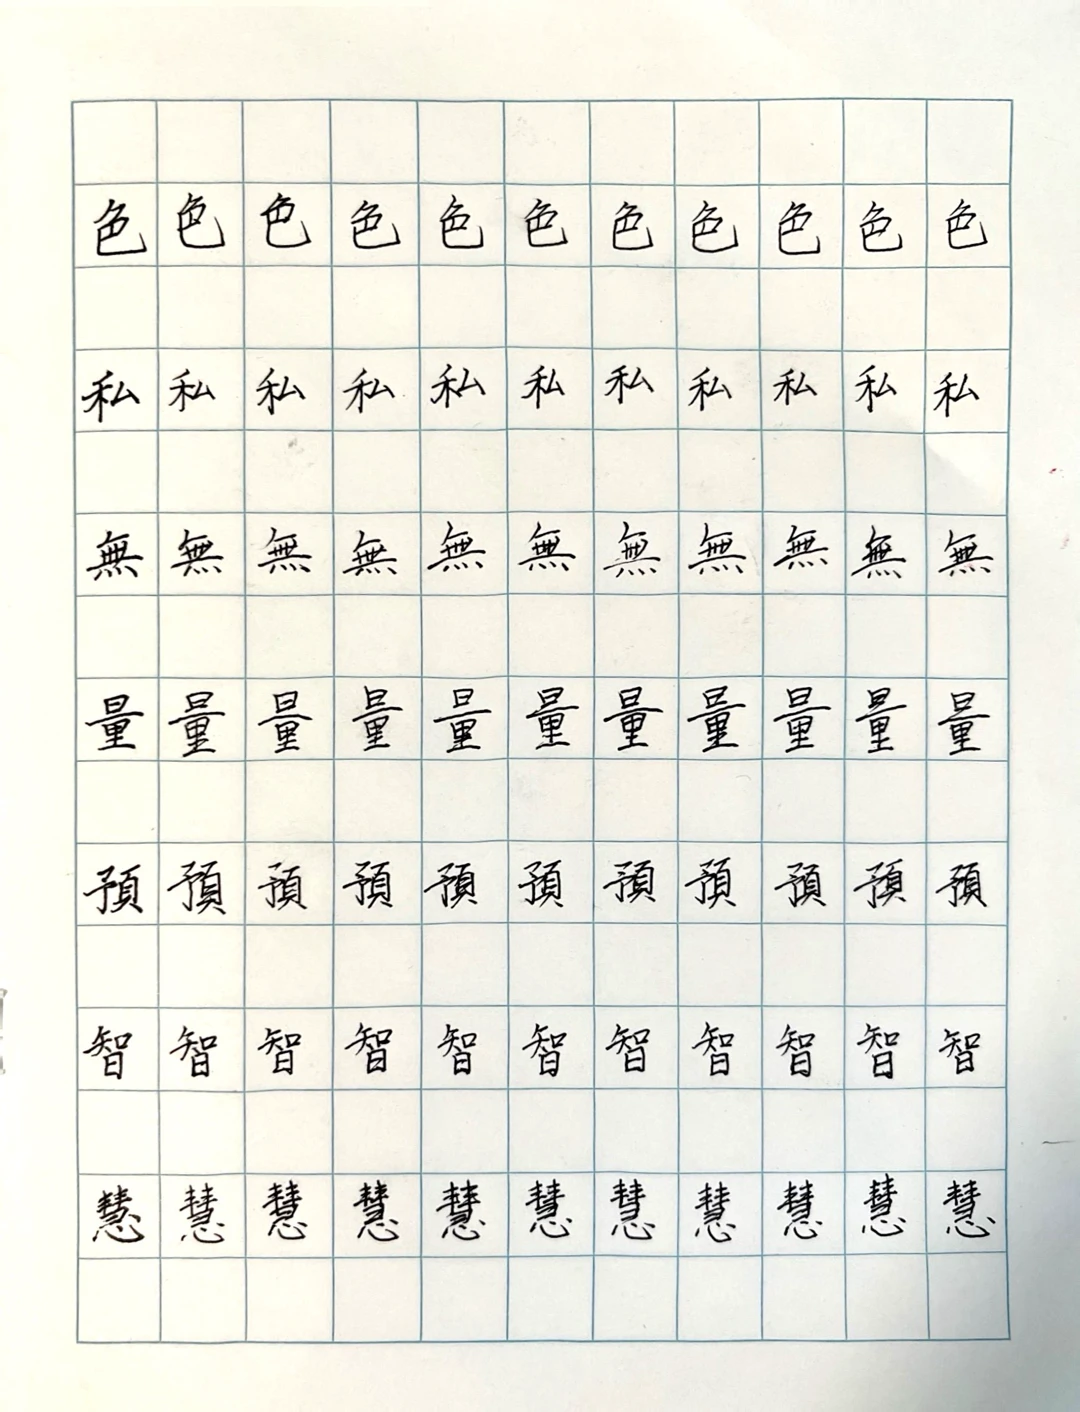 色色色色色色色色色色色
私私私私私私私私私私私
無無無無無無無無無無無
量量量量量量量量量量量
預預預預預預預預預預預
智智智智智智智智智智智
慧慧慧慧慧慧慧慧慧慧慧